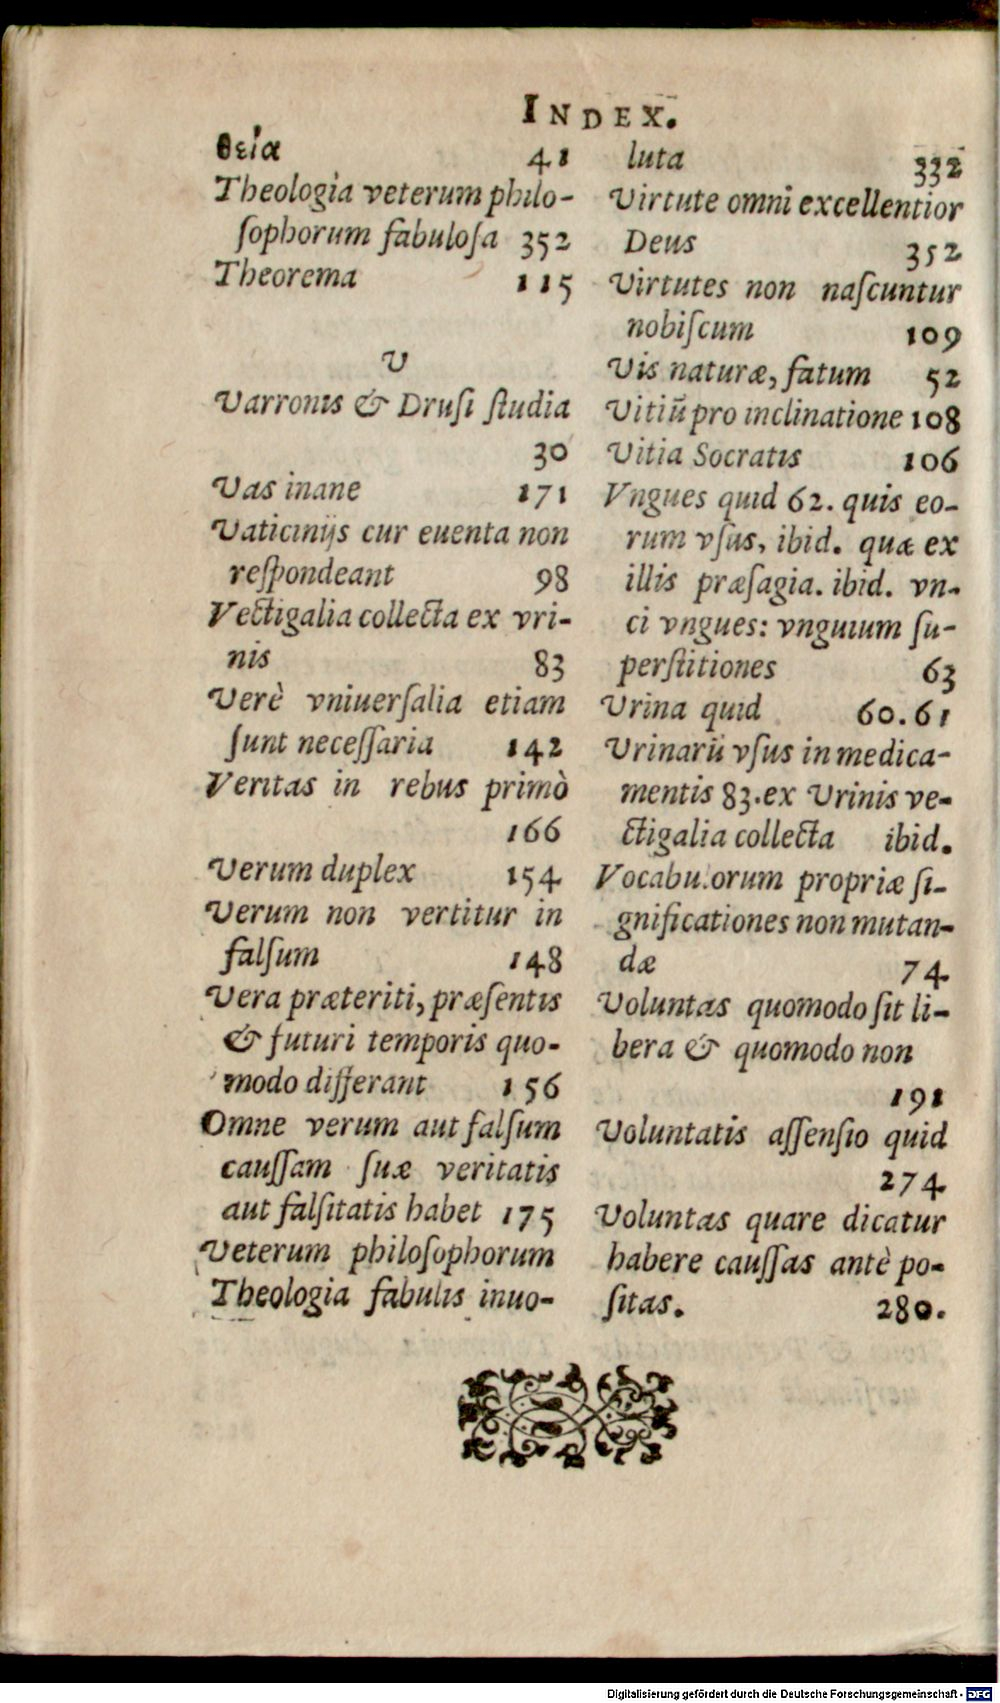 INDEX.
θεῖα 41
Theologia veterum philo-
ſophorum fabuloſa 352
Theorema 115
V
Varronis & Druſi ſtudia
30
Vas inane 171
Vaticinijs cur euenta non
reſpondeant 98
Vectigalia collecta ex vri-
nis 83
Verè vniuerſalia etiam
ſunt neceſſaria 142
Veritas in rebus primò
166
Verum duplex 154
Verum non vertitur in
falſum 148
Vera præteriti, præſentis
& futuri temporis quo-
modo differant 156
Omne verum aut falſum
cauſſam ſuæ veritatis
aut falſitatis habet 175
Veterum philoſophorum
Theologia fabulis inuo-
luta 332
Virtute omni excellentior
Deus 352
Virtutes non naſcuntur
nobiſcum 109
Vis naturæ, fatum 52
Vitiũ pro inclinatione 108
Vitia Socratis 106
Vngues quid 62. quis eo-
rum vſus, ibid. quæ ex
illis præſagia. ibid. vn-
ci vngues: vnguium ſu-
perſtitiones 63
Vrina quid 60.61
Vrinarũ vſus in medica-
mentis 83. ex Vrinis ve-
ctigalia collecta ibid.
Vocabulorum propriæ ſi-
gnificationes non mutan-
dæ 74
Voluntas quomodo ſit li-
bera & quomodo non
191
Voluntatis aſſenſio quid
274
Voluntas quare dicatur
habere cauſſas antè po-
ſitas. 280.
Digitalisierung gefördert durch die Deutsche Forschungsgemeinschaft - DFG